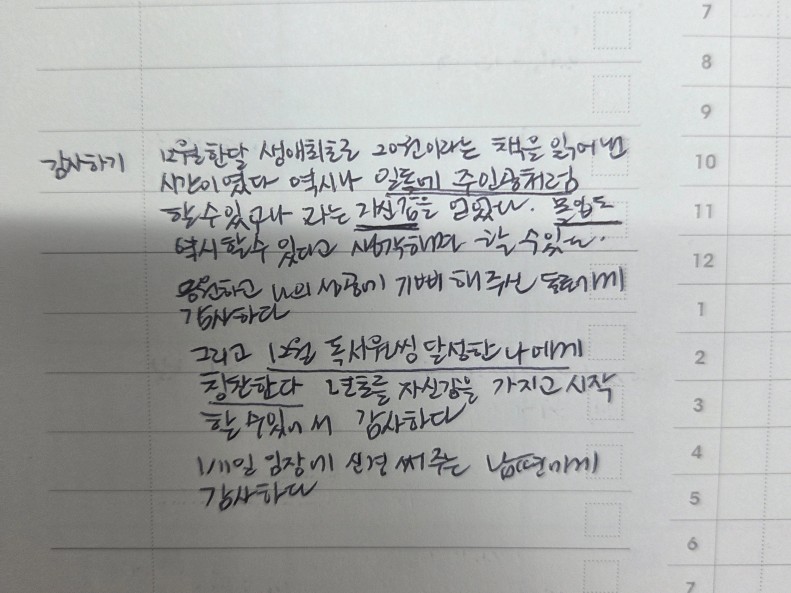 7
8
9
감사하기 12월 한달 생애최초로 20권이라는 책을 읽어낸 10
시간이였다 역시나 일독에 주인공처럼
할 수 있구나 라는 자신감을 얻었다. 몰입도 11
역시 할 수 있다고 생각하면 할 수 있다. 12
응원하고 나의 성공에 기뻐해주신 동료에게 1
감사하다
그리고 12월 독서위씽 달성한 나에게 2
칭찬한다 년초를 자신감을 가지고 시작 3
할 수 있어서 감사하다
1/11일 임장에 신경 써주는 남편에게 4
감사하다 5
6
7